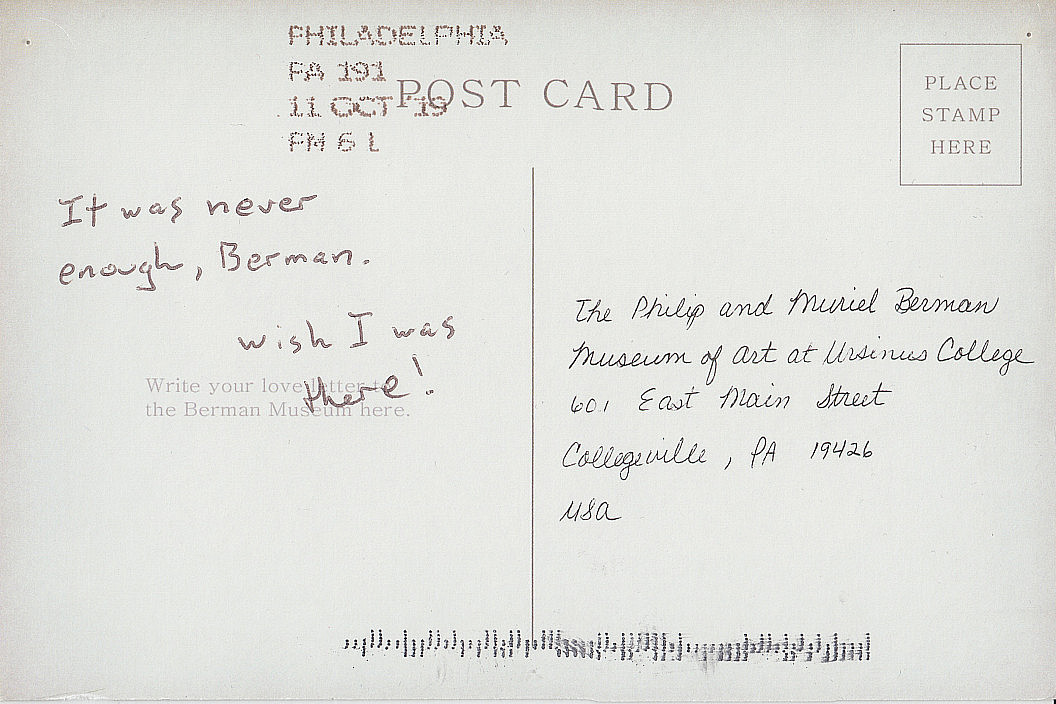 PHILADELPHIA
PA 191
11 OCT '19
PM 6 L
POST CARD
PLACE
STAMP
HERE
It was never
enough, Berman.
wish I was
there!
Write your love letter to
the Berman Museum here.
The Philip and Muriel Berman
Museum of Art at Ursinus College
601 East Main Street
Collegeville, PA 19426
USA